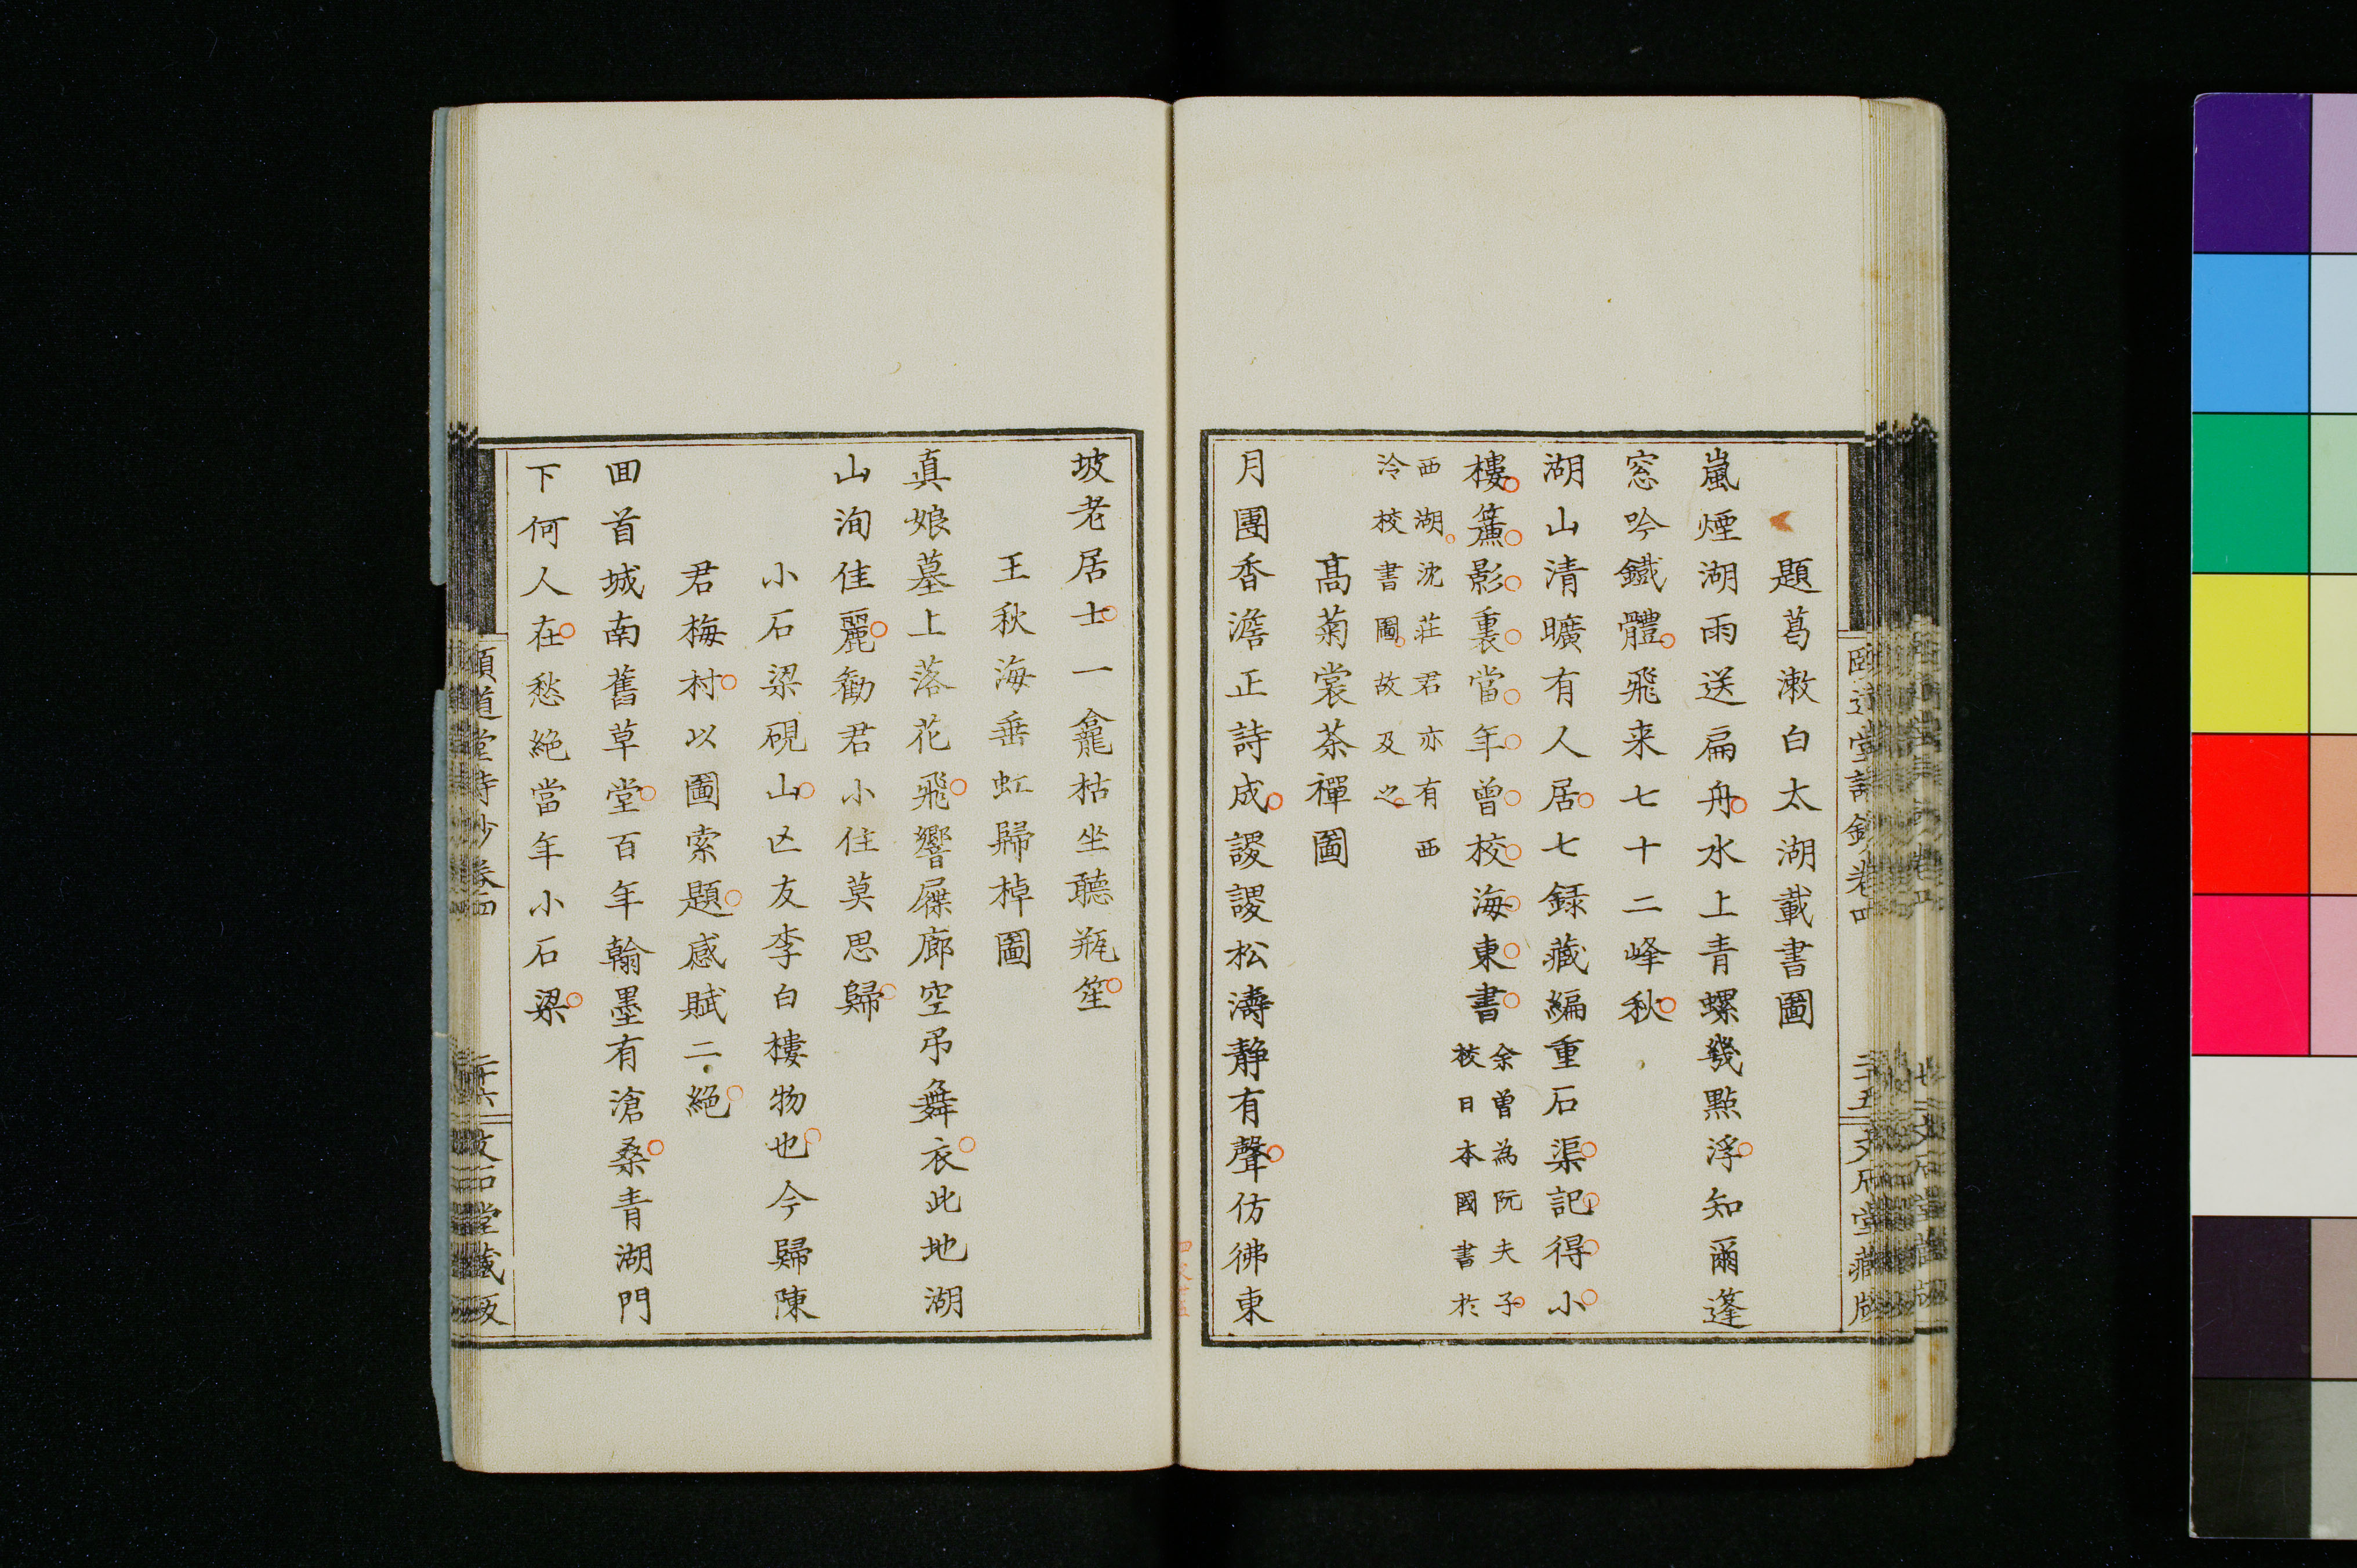 題葛漱白太湖載書圖
嵐煙湖雨送扁舟水上青螺幾點浮知爾蓬
窓吟鐵體飛来七十二峰秋
湖山清曠有人居七録藏編重石渠記得小
樓簾影裏當年曾校海東書余曾為阮夫子
校日本國書於
西湖沈荘君亦有西
泠校書圖故及之
髙菊裳茶禪圖
月團香澹正詩成謖謖松濤静有聲仿彿東
坡老居士一龕枯坐聽瓶笙
王秋海垂虹歸棹圖
真娘墓上落花飛響屧廊空弔舞衣此地湖
山洵佳麗勸君小住莫思歸
小石梁硯山亡友李白樓物也今歸陳
君梅村以圖索題感賦二絕
回首城南舊草堂百年翰墨有滄桑青湖門
下何人在愁絕當年小石梁
頤道堂詩鈔卷四
二十五
文石堂藏版
頤道堂詩鈔卷四
二十六
文石堂藏版